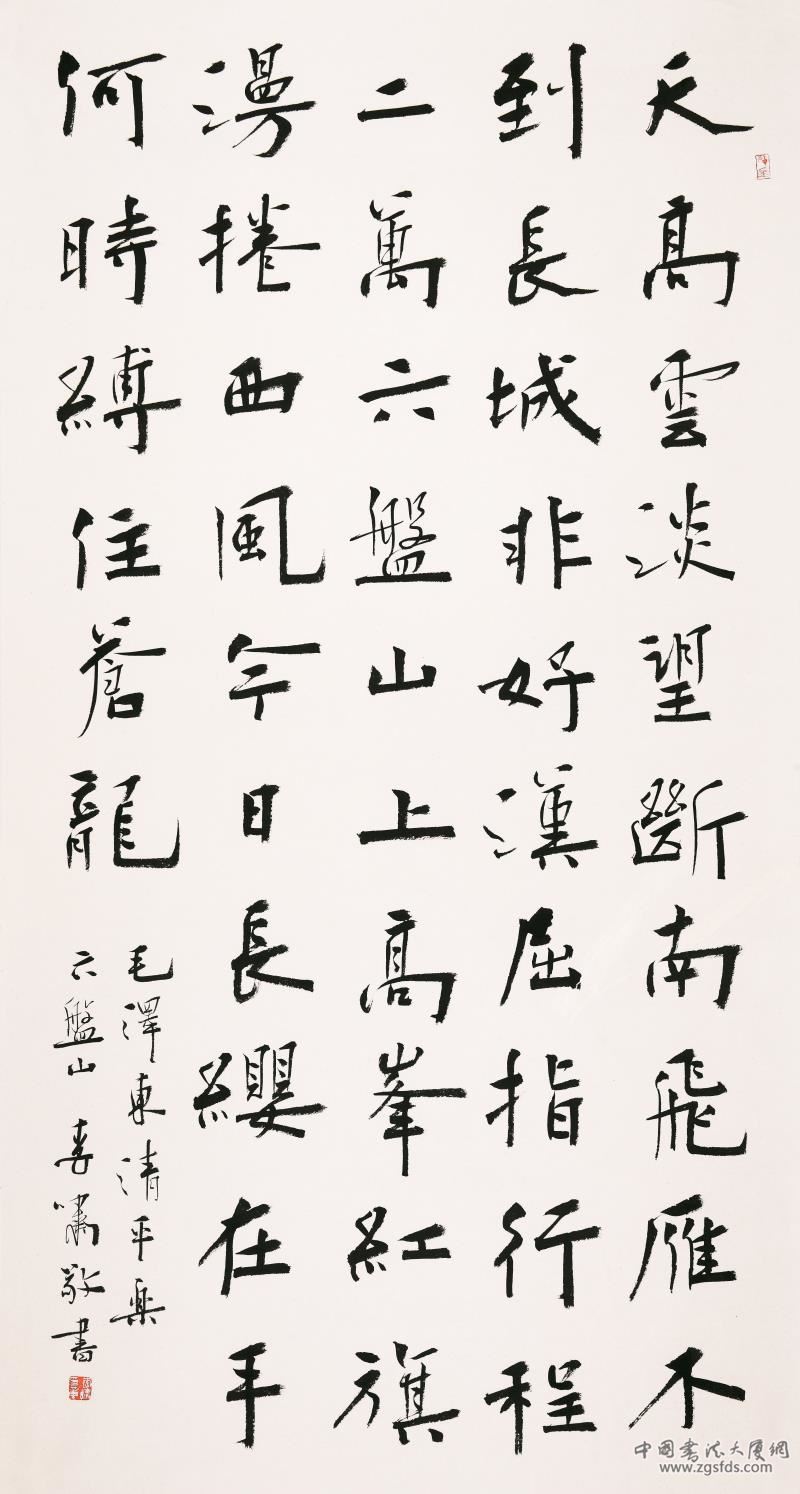 天高雲淡望斷南飛雁不
到長城非好漢屈指行程
二萬六盤山上高峯紅旗
漫捲西風今日長纓在手
何時縛住蒼龍
毛澤東清平樂
六盤山 李嘯敬書
中國書法大廈網
www.zgsfds.com